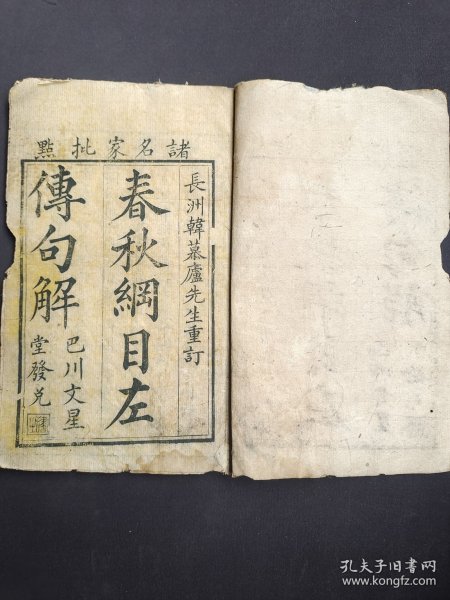 諸名家批點
長洲韓慕廬先生重訂
春秋綱目左
傳句解
巴川文星
堂發兌
孔夫子旧书网
www.kongfz.com